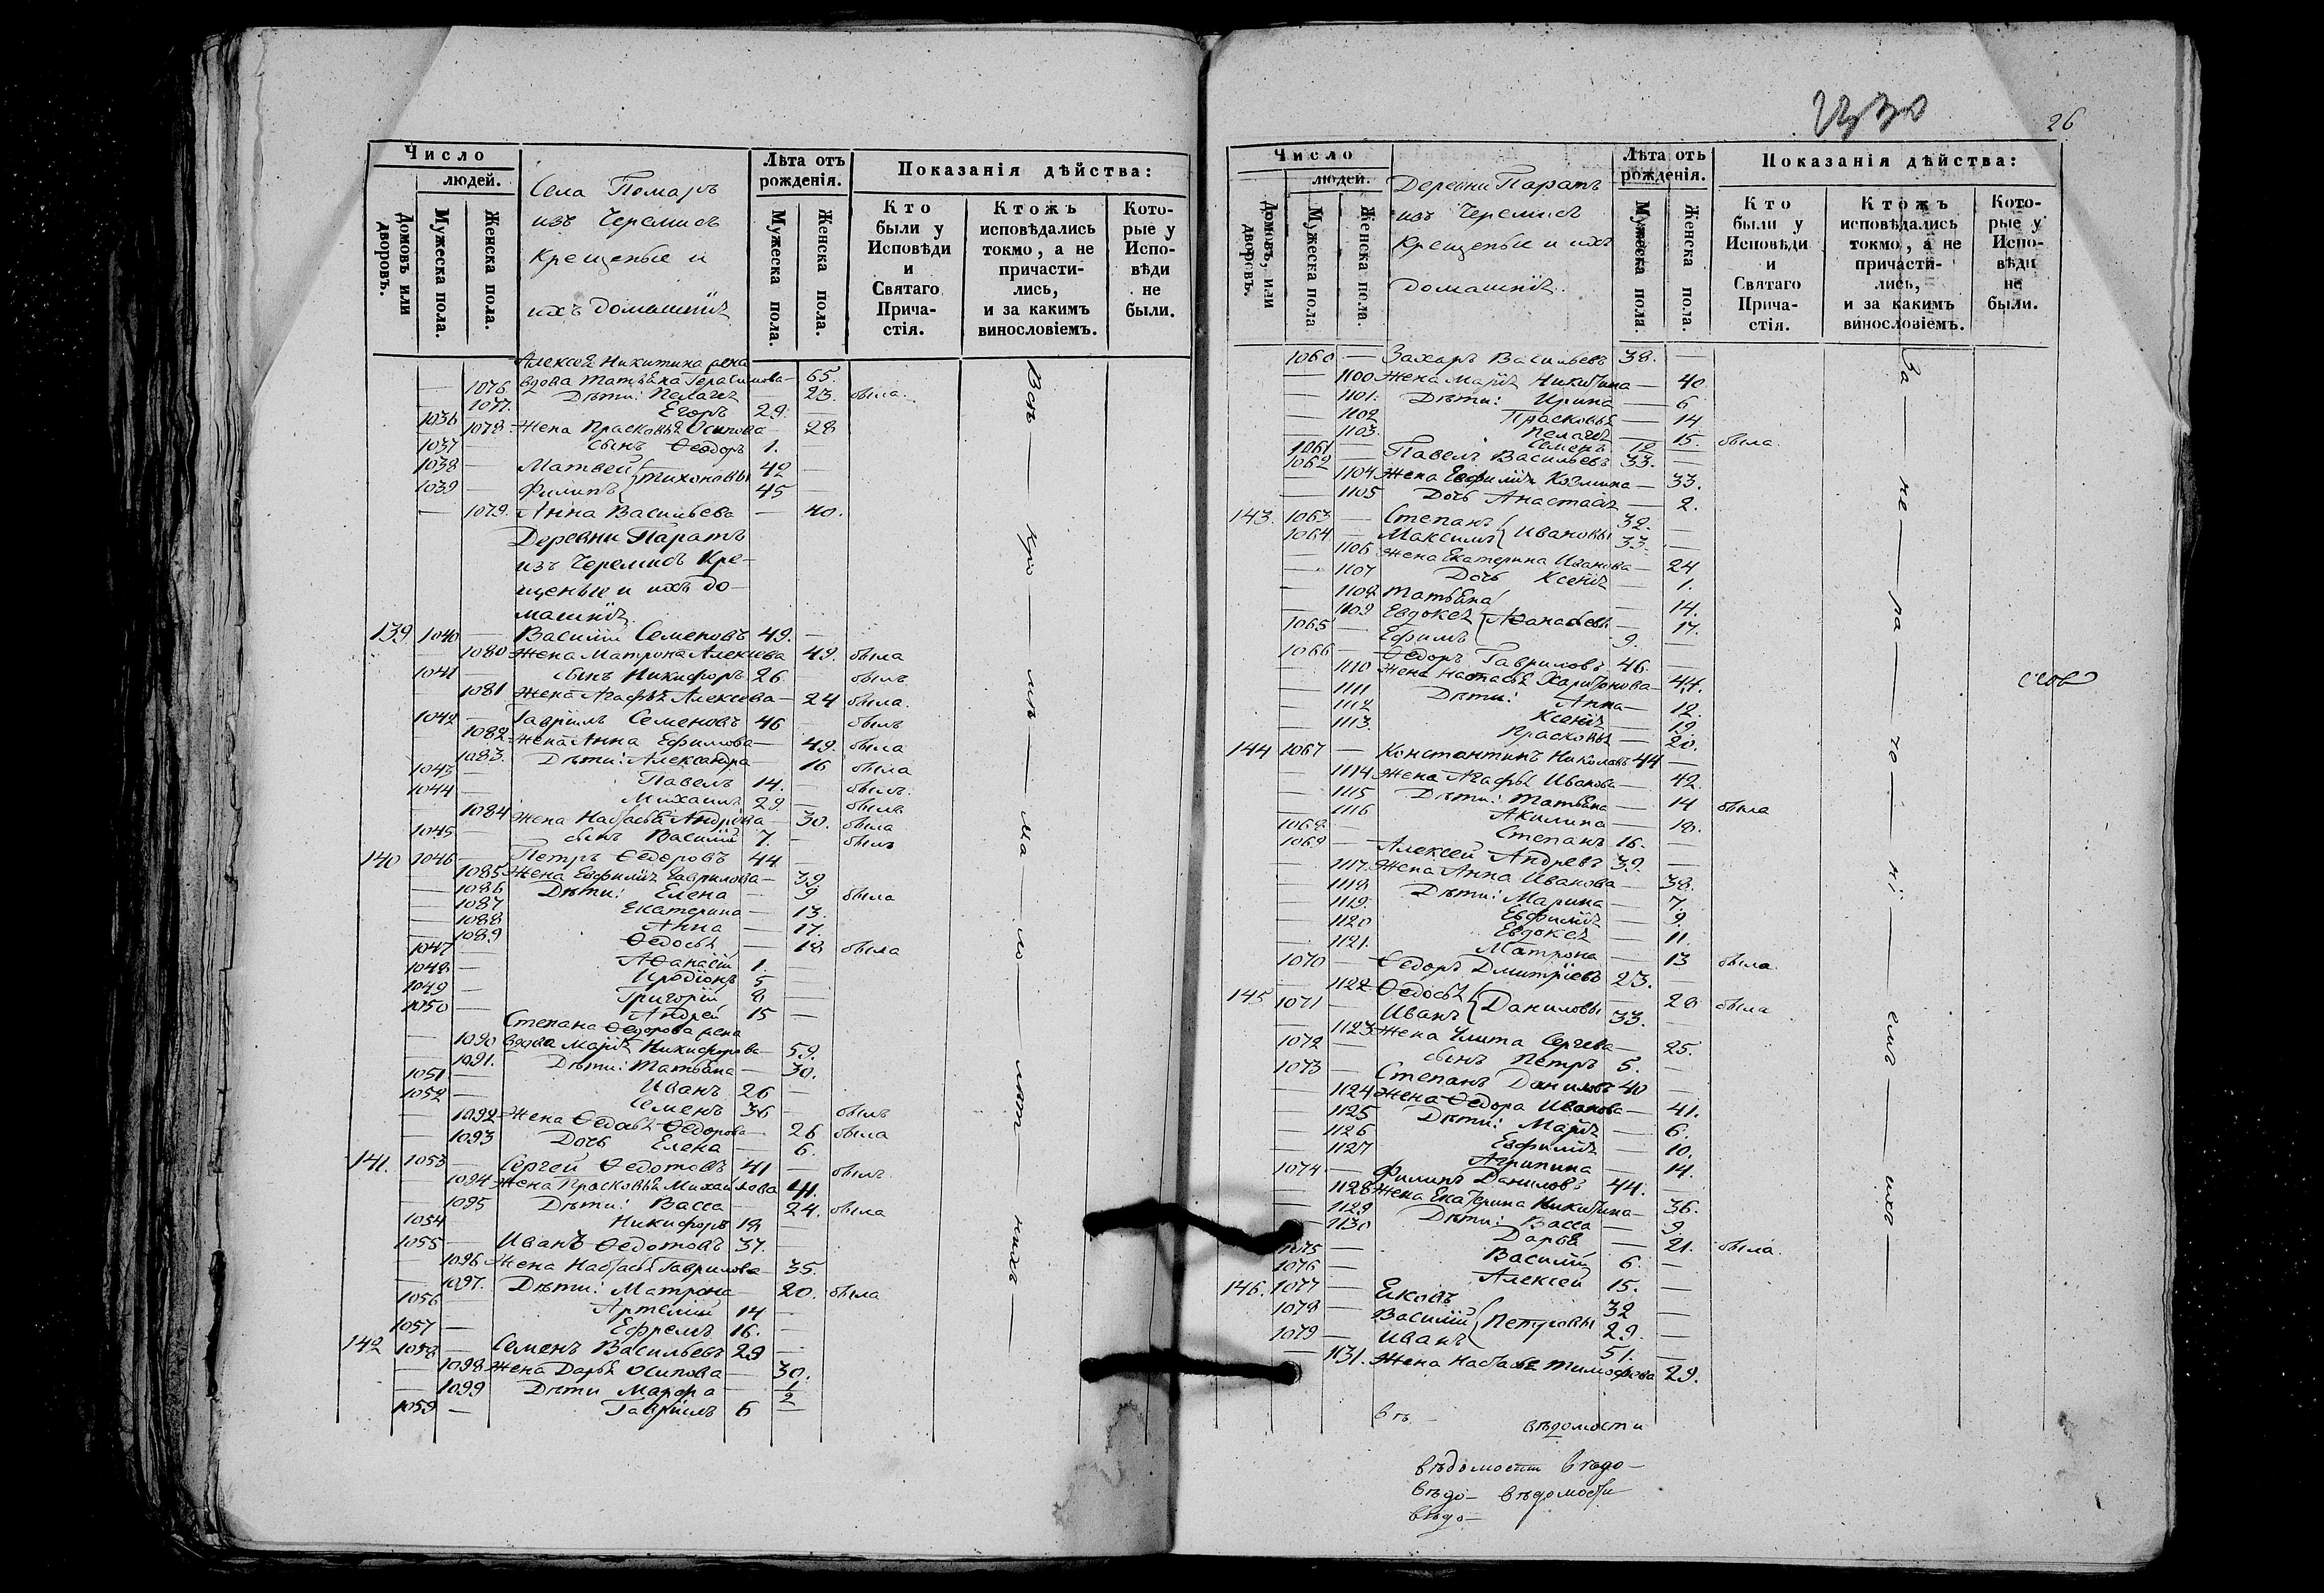 Число
людей.
Домовъ или дворовъ.
Мужеска пола.
Женска пола.
Села Помаръ
изъ Черемисъ
Крещеные и
ихъ домашнія
Лѣта отъ рожденія.
Мужеска пола.
Женска пола.
Показанія дѣйства:
Кто были у Исповѣди и Святаго Прича-стія.
Ктожъ исповѣдались токмо, а не причасти-лись, и за какимъ винословіемъ.
Кото-рые у Испо-вѣди не были.
Алексея Никитина
— 1076. вдова Татьяна Герасимова — 65.
1077. Дѣти: Пелагея — 23. была.
1036 Егоръ 29. —
1078. Жена Прасковья Осипова — 28
1037 — сынъ Ѳеодоръ 1.
1038 — Матвей 42 —
1039 — Филипъ Тихоновы 45 —
— 1079. Анна Васильева — 40.
Деревни Паратъ
изъ Черемисъ Кре-
щеные и ихъ до-
машнія
139 1040 — Василій Семеновъ 49. —
1080 Жена Матрона Алексеева 49. была
1041 — сынъ Никифоръ 26 — былъ
1081 Жена Агафья Алексеева — 24 была.
1042 — Гавріилъ Семеновъ 46 — былъ
1082 Жена Анна Ефимова — 49. была
1083. Дѣти: Александра — 16 была
1043 — Павелъ 14. — былъ.
1044 — Михаилъ 29 — былъ
1084 Жена Настасья Андреева — 30. была
1045 — сынъ Василій 7. — былъ
140 1046 — Петръ Ѳедоровъ 44 —
1085 Жена Евфимія Гаврилова — 39
1086 Дѣти: Елена — 9 была
1087 Екатерина — 13.
1088 Анна — 17.
1089 Ѳедосья — 18 была
1047 — Аѳанасій 1. —
1048 — Иродіонъ 5 —
1049 — Григорій 8 —
1050 — Андрей 15 —
Степана Ѳедорова
1090 вдова Марія Никифорова — 59.
1091. Дѣти: Татьяна — 30.
1051 — Иванъ 26 —
1052 — Семенъ 36 — былъ
1092 Жена Ѳедосья Ѳедорова — 26 была
1093 Дочь Елена — 6.
141. 1053 — Сергей Ѳедотовъ 41 — былъ
1094 Жена Прасковья Михайлова 41.
1095 Дѣти: Васса — 24. была
1054 Никифоръ 18 —
1055 — Иванъ Ѳедотовъ 37. —
1096 Жена Настасья Гаврилова — 35.
1097. Дѣти: Матрона — 20. была
1056 — Артемій 14 —
1057 — Ефремъ 16. —
142 1058 — Семенъ Васильевъ 29 —
1098 Жена Дарья Осипова — 30.
1099 Дѣти Марфа — 1/2
1059 — Гавріилъ 6 —
26
Число
людей.
Домовъ, или дворовъ.
Мужеска пола
Женска пола.
Деревни Паратъ
изъ Черемисъ
Крещеные и ихъ
домашнія.
Лѣта отъ рожденія.
Мужеска пола.
Женска пола.
Показанія дѣйства:
Кто были у Исповѣди и Святаго Прича-стія.
Ктожъ исповѣдались токмо, а не причасти-лись, и за какимъ винословіемъ.
Кото-рые у Испо-вѣди не были.
1060 — Захаръ Васильевъ 38. —
1100 Жена Марія Никитина — 40.
1101. Дѣти: Ирина — 6
1102 Прасковья — 14
1103. Пелагея — 15. была
1061 — Семенъ 12 —
1062 — Павелъ Васильевъ 33. —
1104 Жена Евфимія Козмина — 33.
1105 Дочь Анастасія — 2.
143. 1063 — Степанъ 32. —
1064 — Максимъ Ивановы 33. —
1106 Жена Екатерина Иванова — 24
1107 Дочь Ксенія — 1.
1108 Татьяна — 14.
1109 Евдокея Аѳанасьевы — 17.
1065 — Ефимъ 9. —
1066 — Ѳедоръ Гавриловъ 46. —
1110 Жена Настасья Харитонова — 44.
1111 Дѣти: Анна — 12.
1112 Ксенія — 19
1113. Прасковья — 20.
144 1067 — Константинъ Николаевъ 44 —
1114 Жена Агафья Иванова — 42.
1115 Дѣти: Татьяна — 14 была
1116 Акилина — 18.
1068 — Степанъ 16. —
1069 — Алексей Андреевъ 39. —
1117. Жена Анна Иванова — 38.
1118 Дѣти: Марина — 7.
1119. Евфимія — 9.
1120 Евдокея — 11.
1121. Матрона — 13 была.
1070 — Ѳедоръ Дмитріевъ 23. —
1122 Ѳедосья — 28 была
145 1071 — Иванъ Даниловы 33. —
1123 Жена Улита Сергеева — 25.
1072 — сынъ Петръ 5. —
1073 — Степанъ Даниловъ 40 —
1124 Жена Ѳедора Иванова — 41.
1125 Дѣти: Марія — 6.
1126 Евфимія — 10.
1127 Агрипина — 14.
1074 — Филипъ Даниловъ 44. —
1128 Жена Екатерина Никитина — 36.
1129 Дѣти: Васса — 9
1130 Дарья — 21. была.
1075 — Василій 6. —
1076 — Алексей 15. —
146. 1077 — Ековъ 32 —
1078 — Василій Петровы 29. —
1079 — Иванъ 51. —
1131. Жена Настасья Тимофеева 29.
За — не — ра — че — ні — емъ — ихъ —
въ — вѣдомости
вѣдомости вѣдо—
вѣдо— вѣдомости
вѣдо—